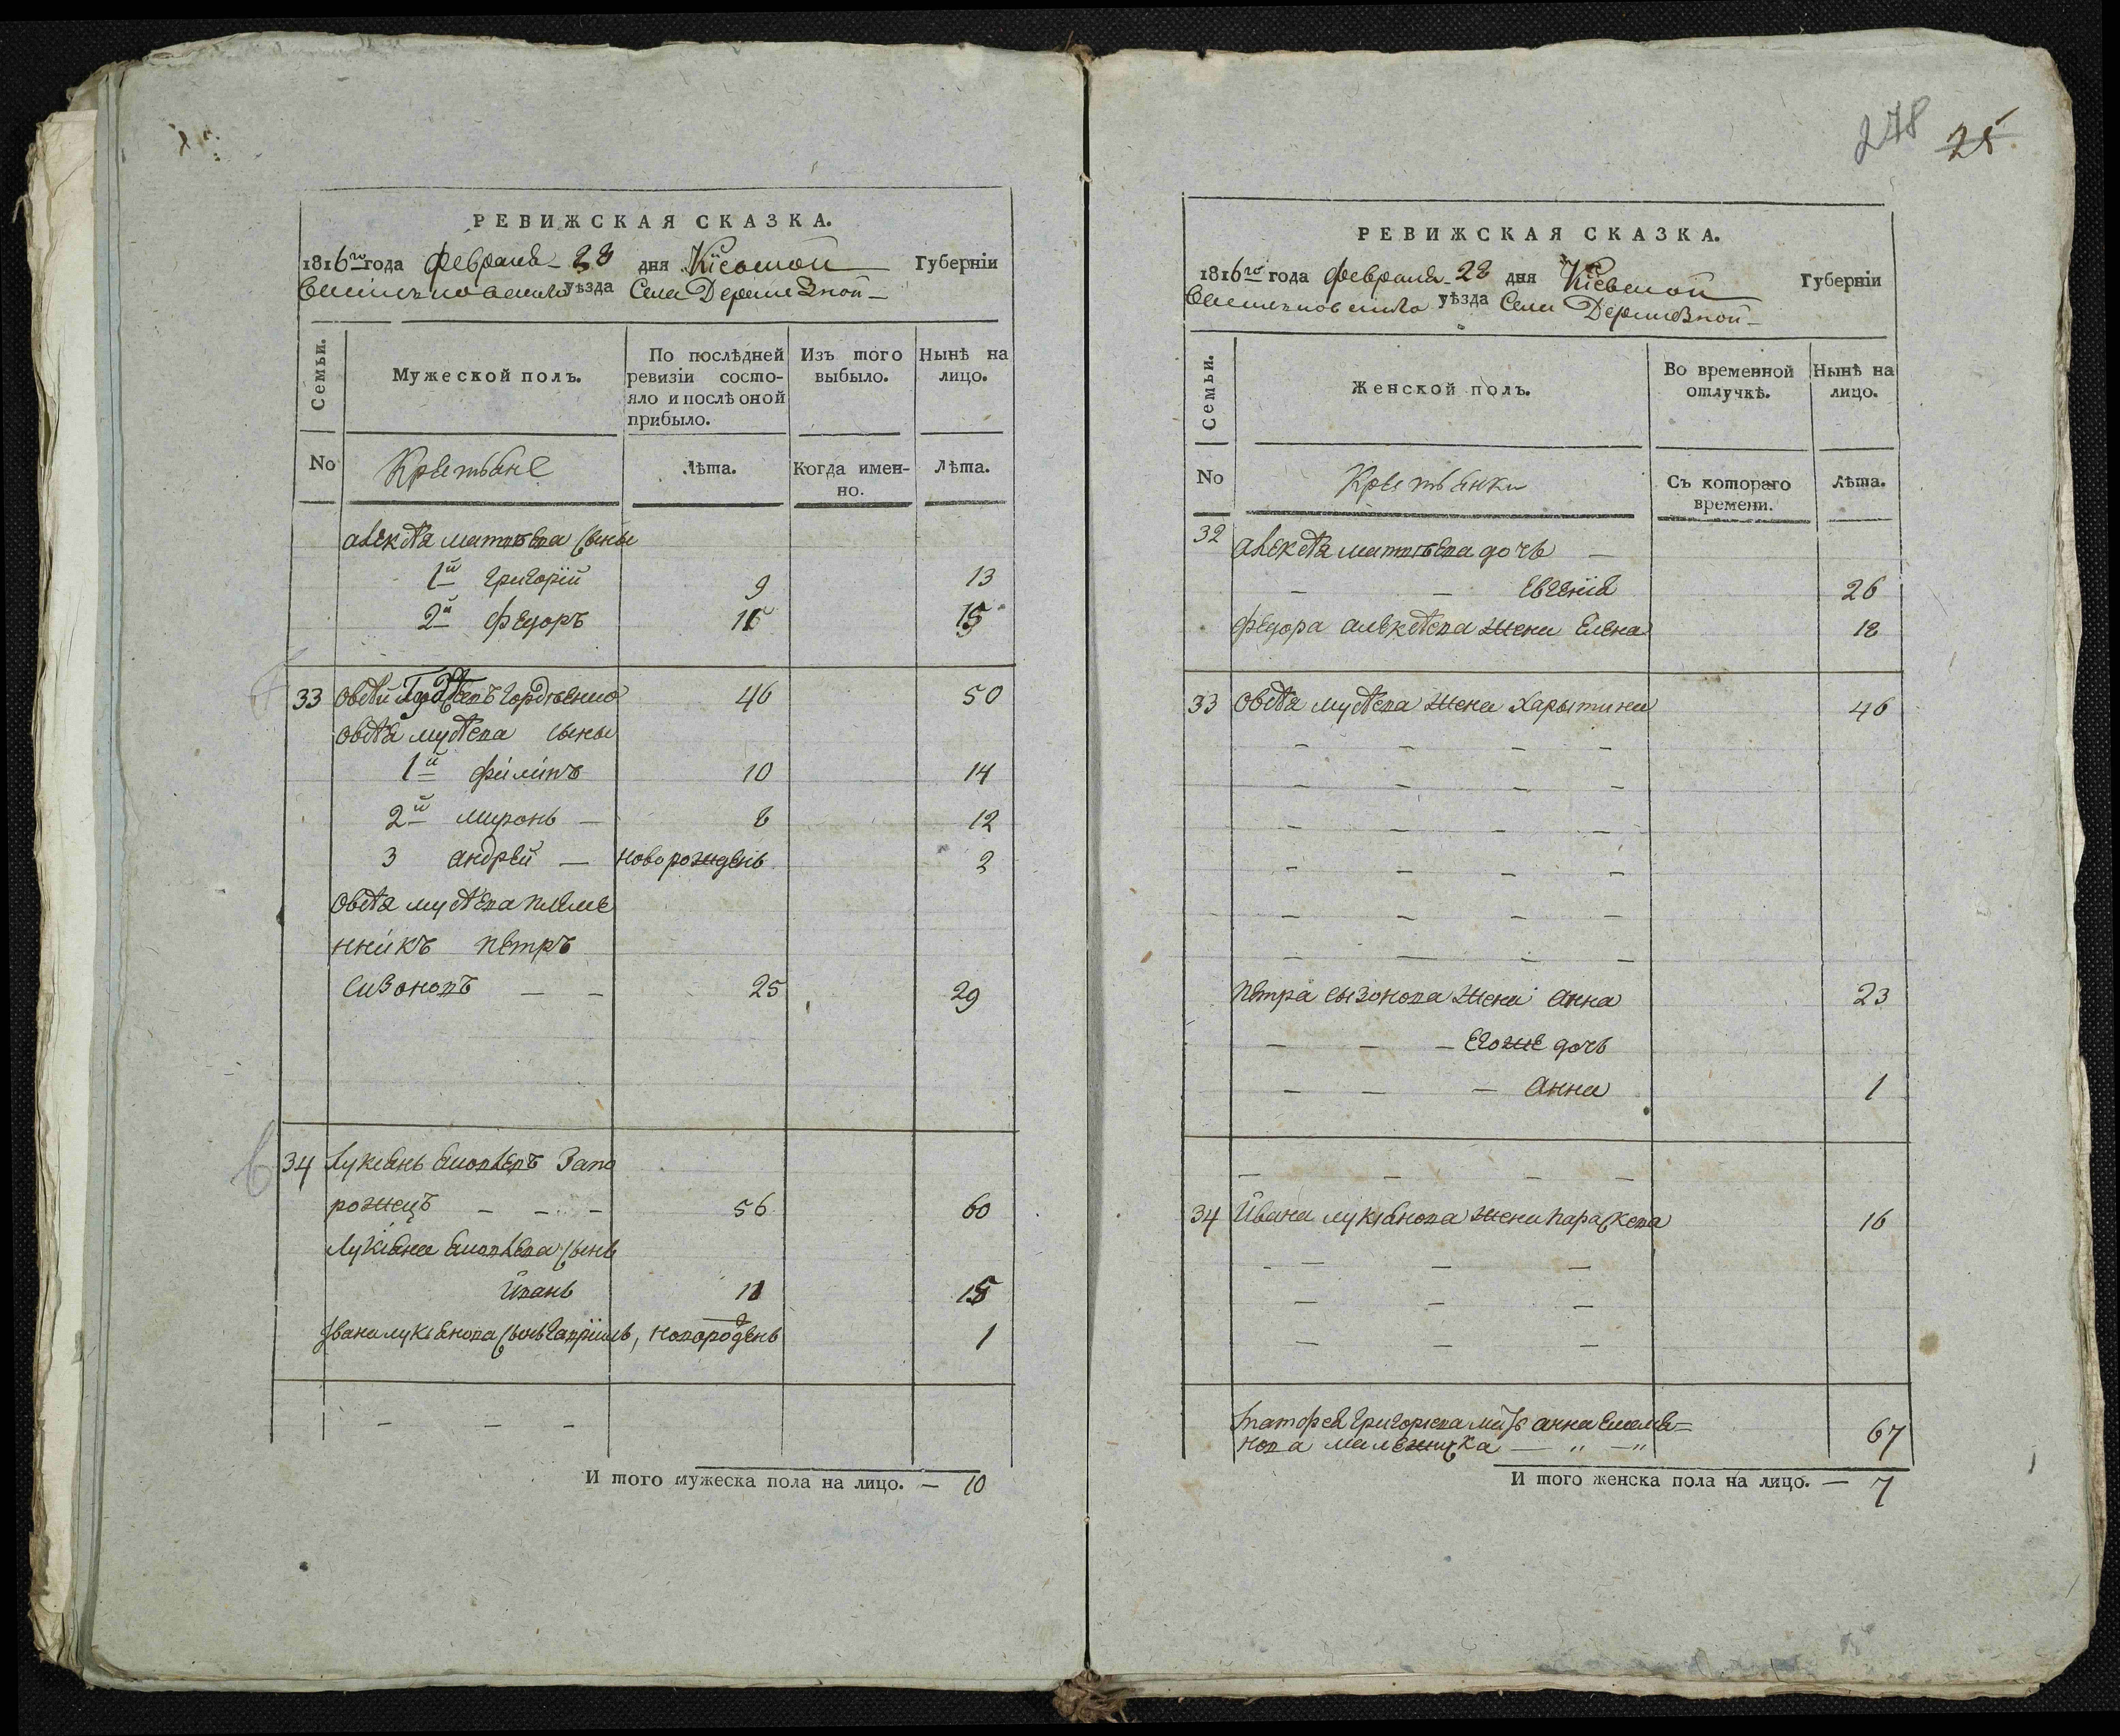 РЕВИЖСКАЯ СКАЗКА.
1816го года февраля 28 дня Кіевской Губерніи
уѣзда Села
Семьи.
Мужеской полъ.
По послѣдней ревизіи состояло и послѣ оной прибыло.
Изъ того выбыло.
Нынѣ на лицо.
No
Крестьяне
Лѣта.
Когда именно.
Лѣта.
алексѣя матвѣева сыны
1й григорій 9 13
2й федоръ 15
33 овсѣй гордѣенко 46 50
овсѣя мусѣева сыны
1й филипъ 10 14
2й миронъ — 8 12
3 андрей — новорожденъ 2
овсѣя мусѣева племе
нникъ петръ
сизоновъ — — 25 29
34 лукіянъ Запо
рожецъ — — — 56 60
лукіяна сынъ
іванъ 11 15
івана лукіянова сынъ гавріилъ, новорожденъ 1
— — —
И того мужеска пола на лицо. — 10
278 25
РЕВИЖСКАЯ СКАЗКА.
1816го года февраля 28 дня Кіевской Губерніи
уѣзда Села
Семьи.
Женской полъ.
Во временной отлучкѣ.
Нынѣ на лицо.
No
Крестьянки
Съ котораго времени.
Лѣта.
32 алексѣя матвѣева дочь —
— — евгенія 26
федора алексѣева жена елена 18
33 овсѣя мусѣева жена харытина 46
петра сызонова жена анна 23
— — — егоже дочь
— — — анна 1
34 івана лукіянова жена параскева 16
григорьева анна
нова 67
И того женска пола на лицо. — 7